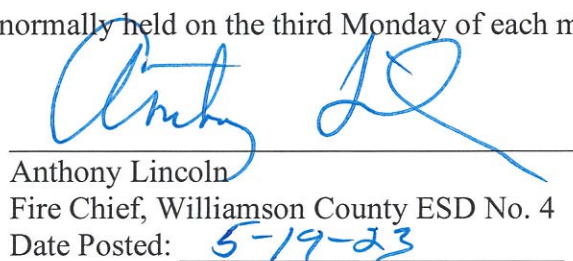 normally held on the third Monday of each m
Anthony Lincoln
Fire Chief, Williamson County ESD No. 4
Date Posted: 5-19-23